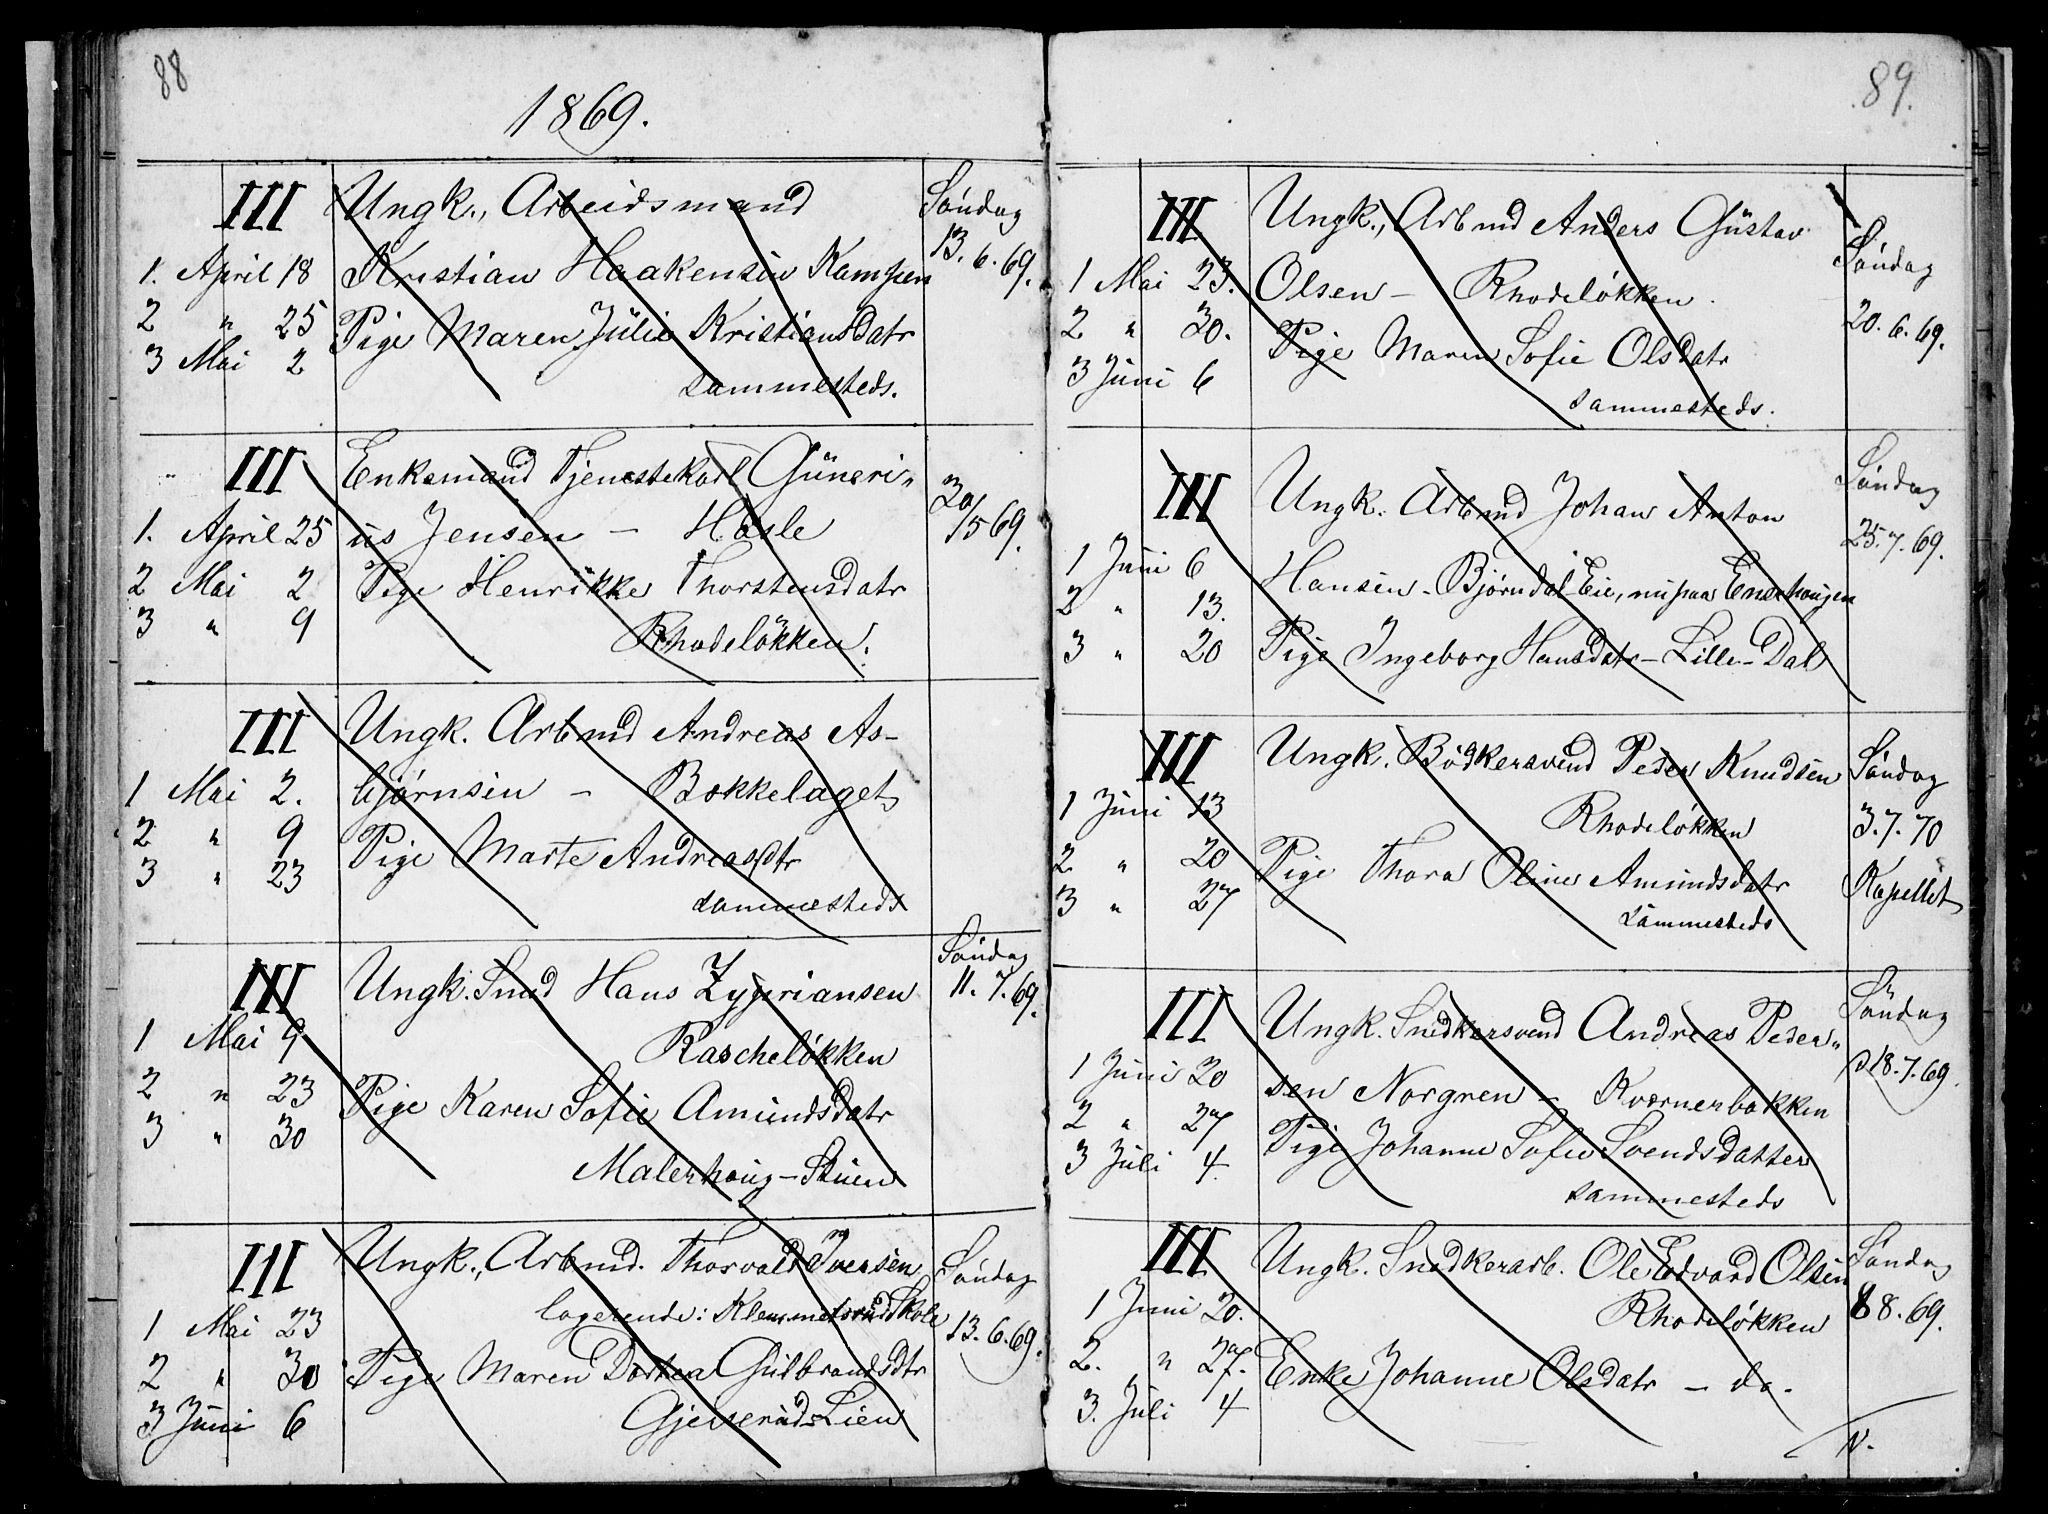 88
1869.
III Ungk., Arbeidsmand Søndag
1. April 18 Kristian Haakensen Kampen 13.6.69.
2 " 25 Pige Maren Julie Kristiansdatr
3 Mai 2 sammesteds.
III Enkemand Tjenestekarl Guneri-
1. April 25 us Jensen – Hasle 30/5 69.
2 Mai 2 Pige Henrikke Thorstensdatr
3 " 9 Rhodeløkken.
III Ungk. Arbmd Andreas As-
1 Mai 2. bjørnsen – Bekkelaget
2 " 9 Pige Marte Andreasdtr
3 " 23 sammesteds
III Ungk. Smed Hans Zypriansen Søndag 11.7.69.
1 Mai 9 Rascheløkken
2 " 23 Pige Karen Sofie Amundsdatr
3 " 30 Malerhaug-Stuen
III Ungk., Arbmd. Thorvald Iversen Søndag
1 Mai 23 logerende: Klemmetsrud Skole 13.6.69.
2 " 30 Pige Maren Dortea Gulbrandsdtr
3 Juni 6 Gjerserud-Lien
89.
III Ungk., Arbmd Anders Gustav Søndag
1 Mai 23. Olsen – Rhodeløkken.
2 " 30. Pige Maren Sofie Olsdatr 20.6.69.
3 Juni 6 sammesteds.
III Ungk. Arbmd Johan Anton Søndag 25.7.69.
1 Juni 6 Hansen – Bjørndal-Eie, nu paa Enerhaugen
2 " 13.
3 " 20 Pige Ingeborg Hansdatr – Lille-Dal
III Ungk. Bødkersvend Peder Knudsen Søndag
1 Juni 13 Rhodeløkken 3.7.70
2 " 20 Pige Thora Oline Amundsdatr Kapellet
3 " 27 sammesteds
III Ungk. Snedkersvend Andreas Peder- Søndag
1 Juni 20 sen Norgren – Kværnerbakken 18.7.69.
2 " 27
3 Juli 4 Pige Johanne Sofie Svendsdatter
sammesteds
III Ungk. Snedkerarb. Ole Edvard Olsen Søndag
1 Juni 20. Rhodeløkken 8 8.69.
2. " 27. Enke Johanne Olsdatr – do.
3. Juli 4
N.